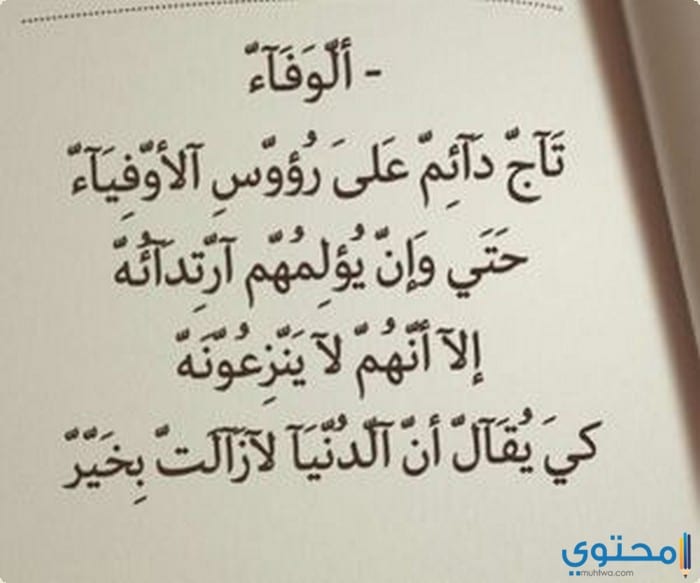 - ألّوَفَآءّ
تَآجّ دَآئِمّ عَلىَ رُؤوّسِ آلأوّفِيَآءّ
حَتَي وَإنّ يُؤلِمُهّم آرّتِدَآئُهّ
إلآ أنّهُمّ لآ يَنّزِعُوّنَهّ
كيَ يُقَآلّ أنّ آلّدُنّيَآ لآزَآلَتّ بِخَيّرّ
محتوي
muhtwa.com